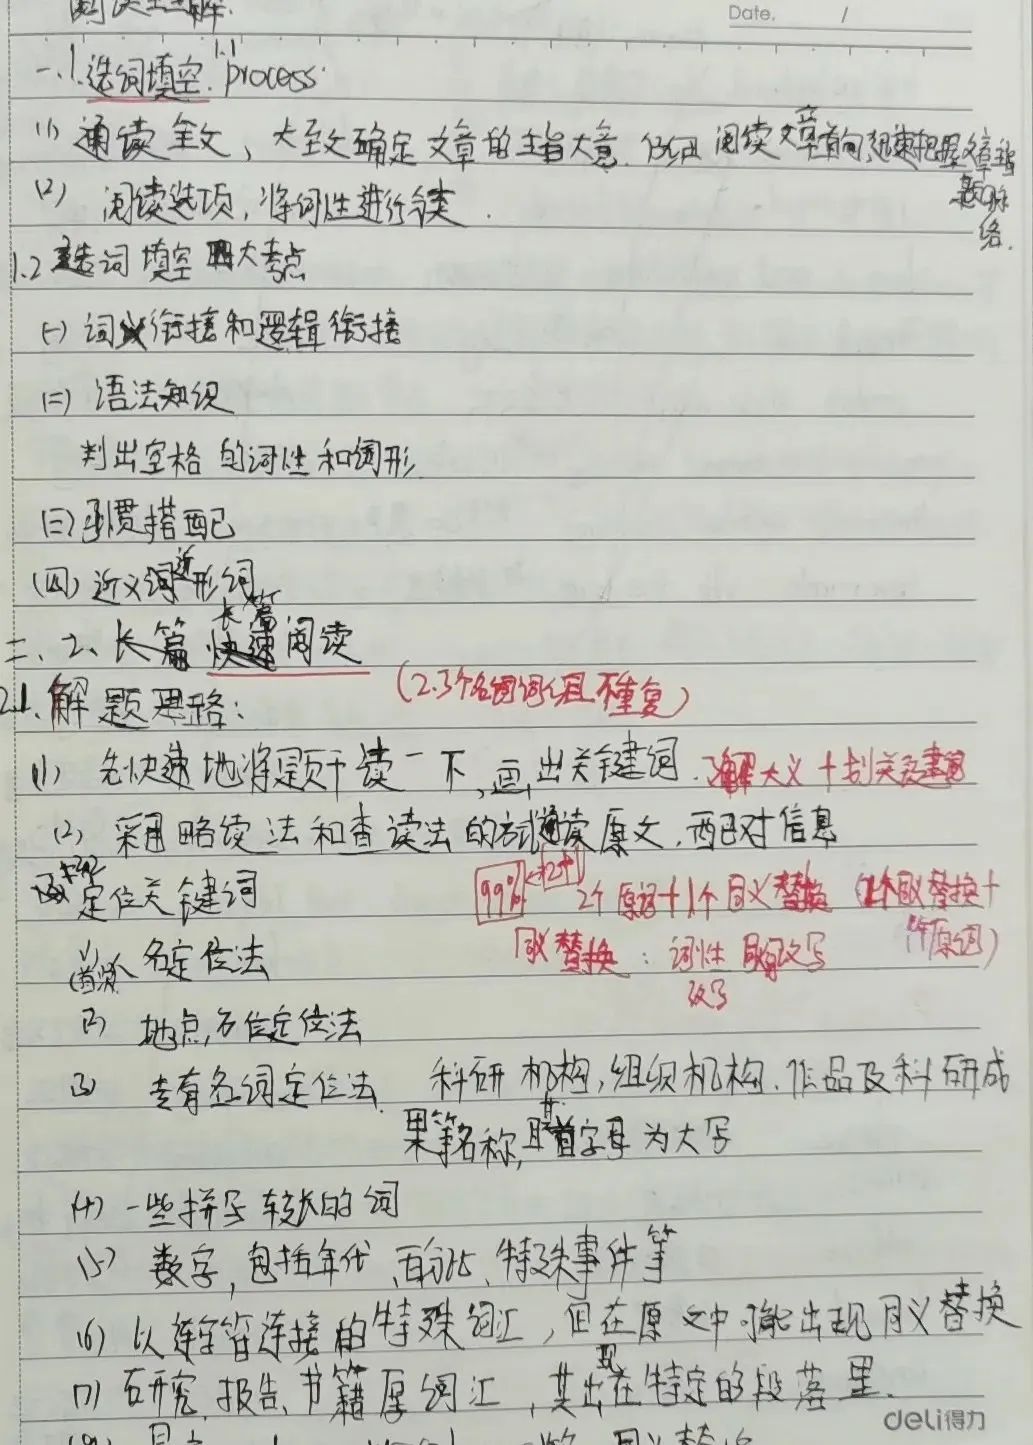 阅读理解:
Date. /
一.1.选词填空. 1.1 process.
(1) 通读全文，大致确定文章的主旨大意. 仔细阅读文章首句,迅速把握文章
络.
(2) 阅读选项,将词性进行分类.
1.2 选词填空四大考点
(一) 词义衔接和逻辑衔接
(二) 语法知识
判出空格的词性和词形
(三) 习惯搭配
(四) 近义词近形词
二、2、长篇阅读
(2.3个名词词组不重复)
2.1.解题思路:
(1) 先快速地将题干读一下,画出关键词. 了解大义+划关键词
(2) 采用略读法和查读法的方式通读原文,匹配对信息
定位关键词
99% 2个原词+1个同义替换 (1个同义替换+
1个原词)
同义替换: 词性改写
(1) 人名定位法
(2) 地点,方位定位法
(3) 专有名词定位法. 科研机构,组织机构.作品及科研成
果等名称,且首字母为大写
(4) 一些拼写较长的词
(5) 数字,包括年代、百分比、特殊事件等
(6) 以连字符连接的特殊词汇,但在原文中可能出现同义替换
(7) 研究、报告、书籍 词汇,其出现在特定的段落里.
deli得力